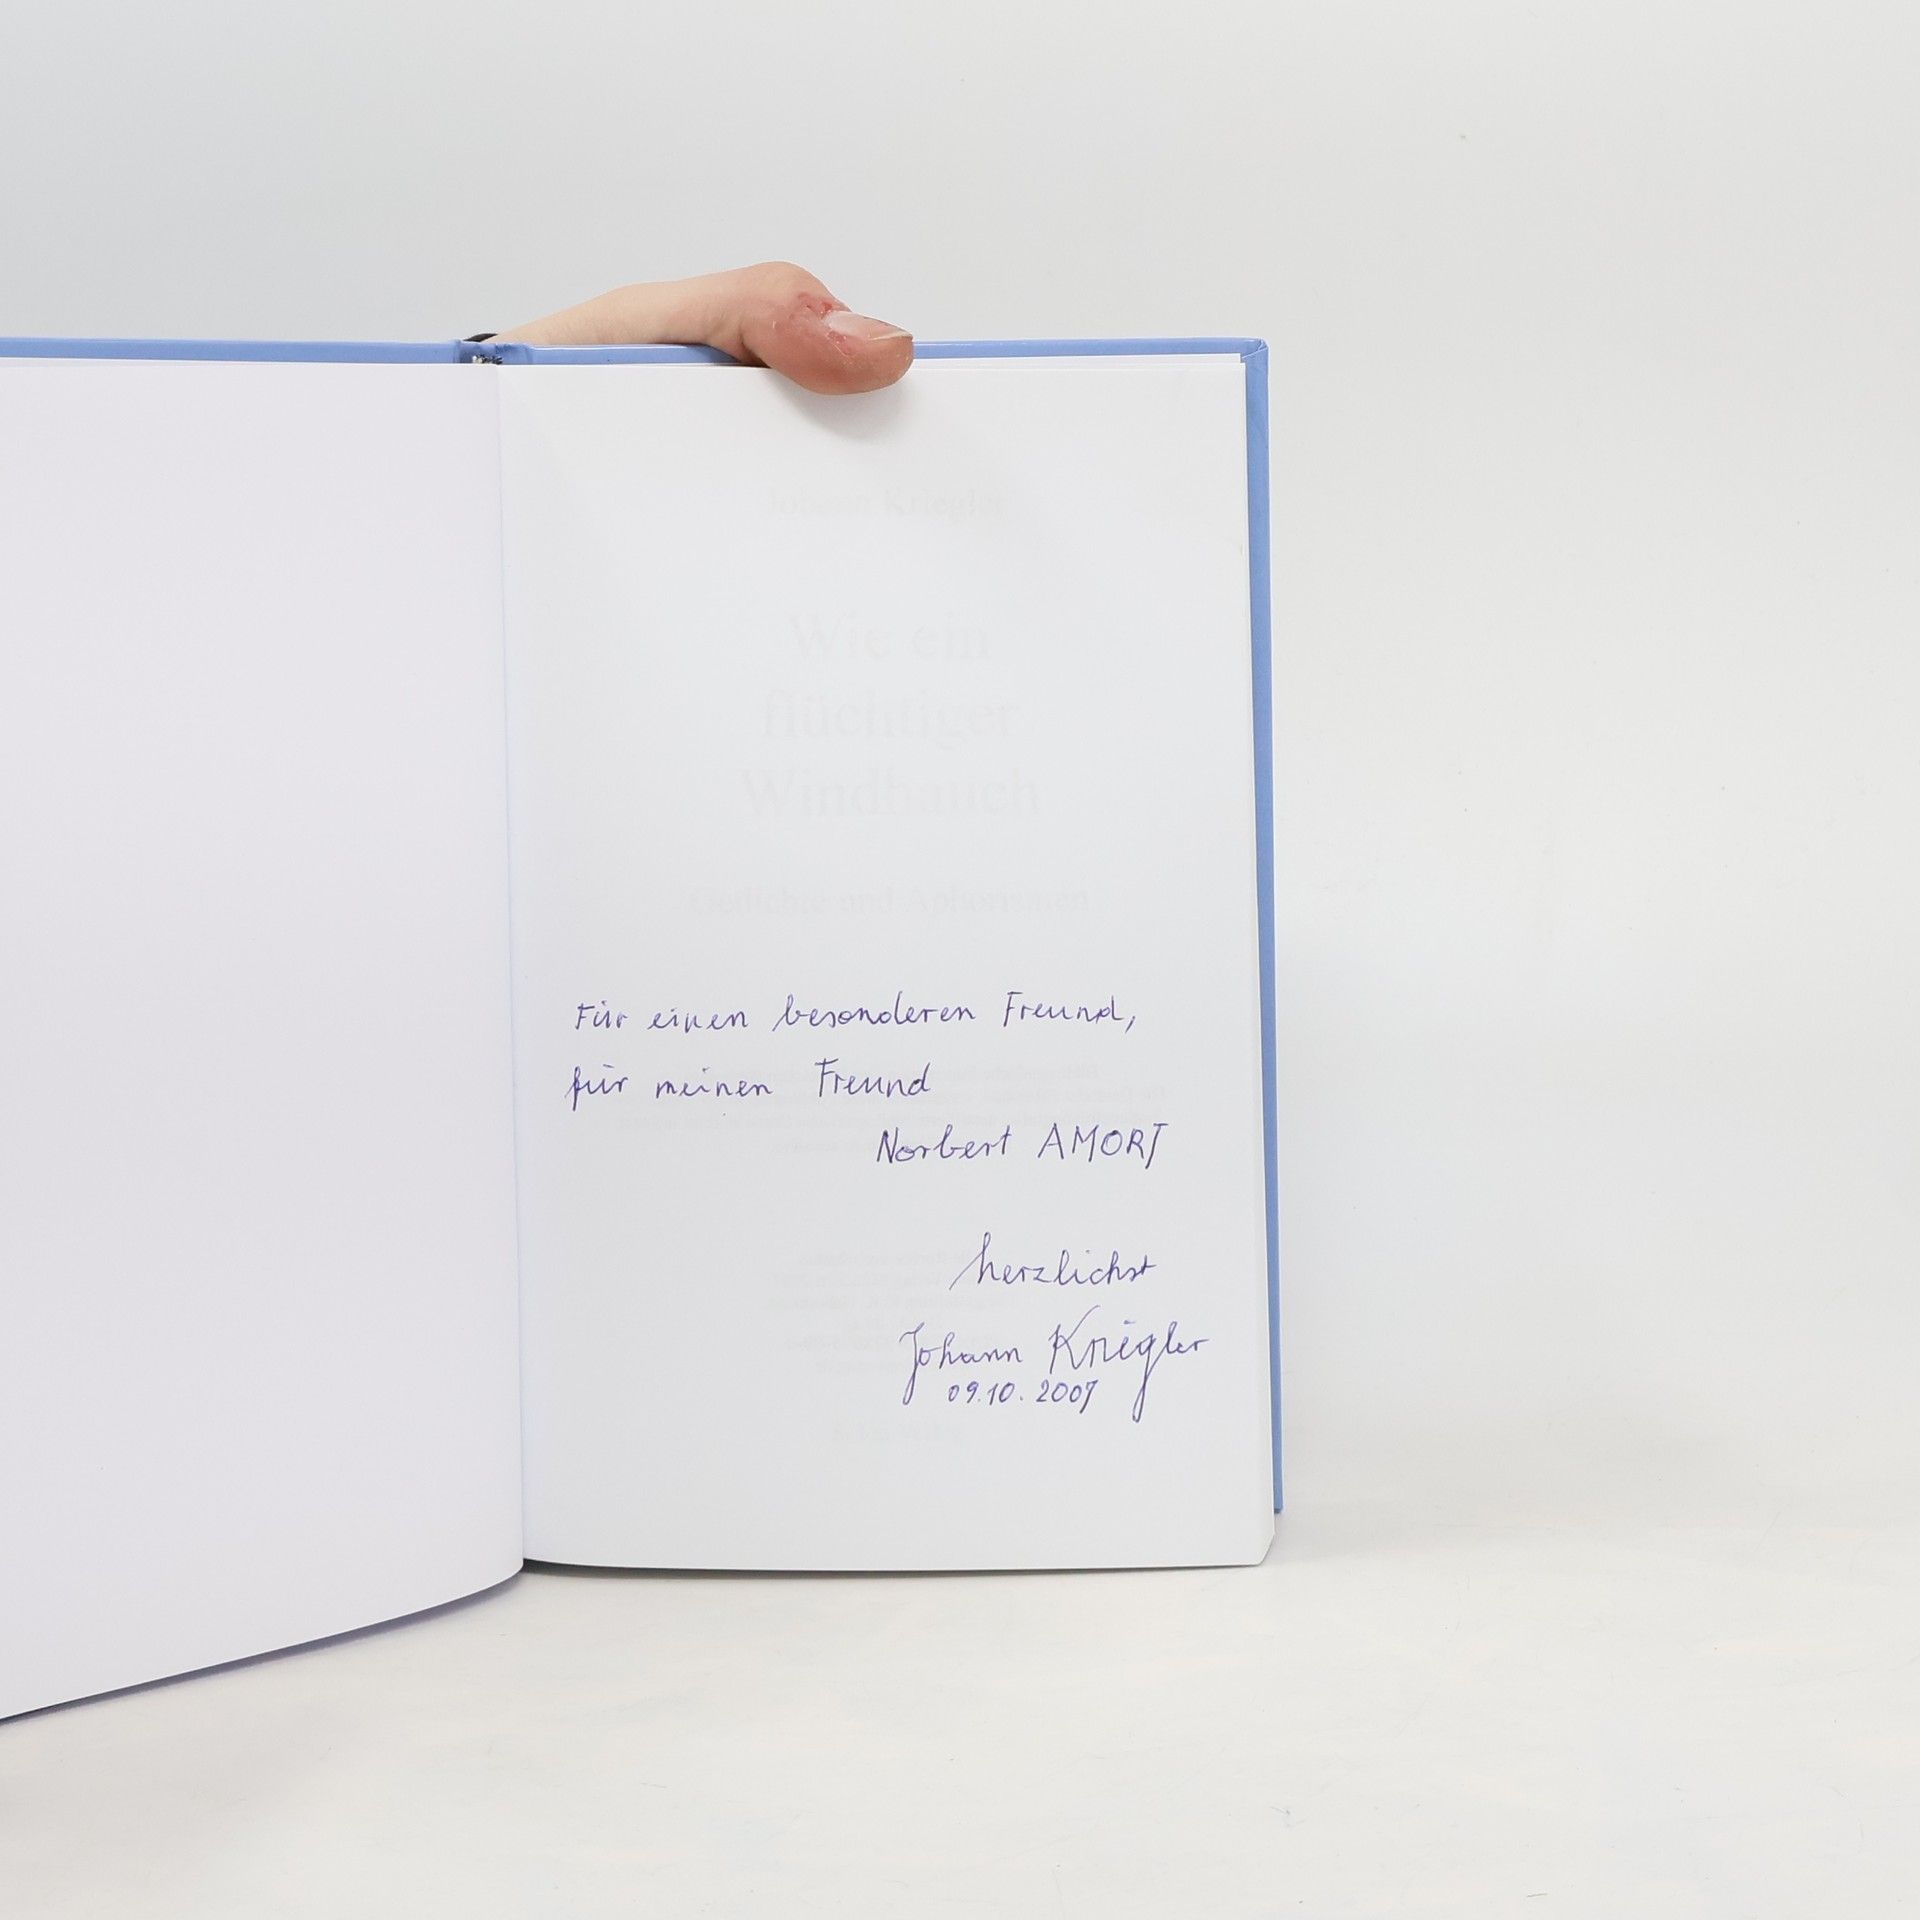 Johann Kriegler
Wie ein
flüchtiger
Windhauch
Gedichte und Aphorismen
Für einen besonderen Freund,
für meinen Freund
Norbert AMORT
herzlichst
Johann Kriegler
09.10.2007